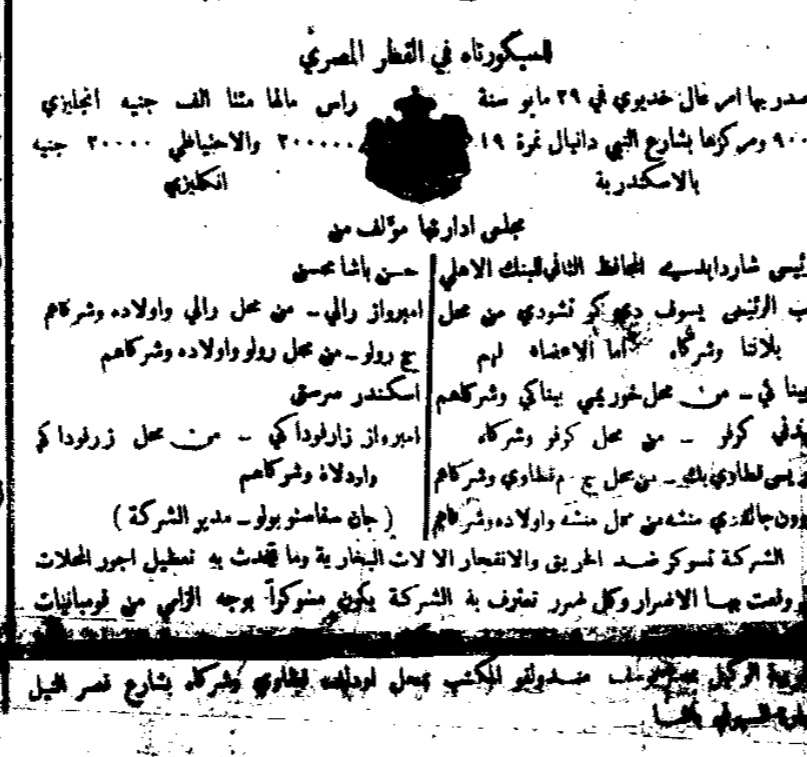 للسيكورتاه في القطر المصري
صدر بها امر عال خديوي في ٢٩ مايو سنة
٩٠٠ ومركزها بشارع النبي دانيال نمرة ١٩
بالاسكندرية
راس مالها مئتا الف جنيه انجليزي
٢٠٠٠٠٠ والاحتياطي ٢٠٠٠٠ جنيه
انكليزي
مجلس ادارتها مؤلف من
شارد المحافظ الثاني للبنك الاهلي
ب الرئيس يسوف دي كو نشودي من محل
بلانتا وشركاه اما الاعضاء لهم
من محل خوريمي بيناكي وشركاهم
كرفو ـ من محل كرفو وشركاه
قطاوي بك ـ من محل ج م قطاوي وشركاهم
منشه من محل منشه واولاده وشركاهم
حسن باشا محسن
امبرواز رالي ـ من محل رالي واولاده وشركاهم
ج رولو ـ من محل رولو واولاده وشركاهم
اسكندر
امبرواز زارفوداكي ـ من محل زرفوداكي
واولاده وشركاهم
( جان مدير الشركة )
الشركة تسوكر ضد الحريق والانفجار الالات البخارية وما تحدث به تعطيل اجور المحلات
وقعت بها الاضرار وكل ضرر تعترف به الشركة يكون مسوكراً بوجه من قومبانيات
الوكيل المكتب بمحل قطاوي وشركاه بشارع قصر النيل